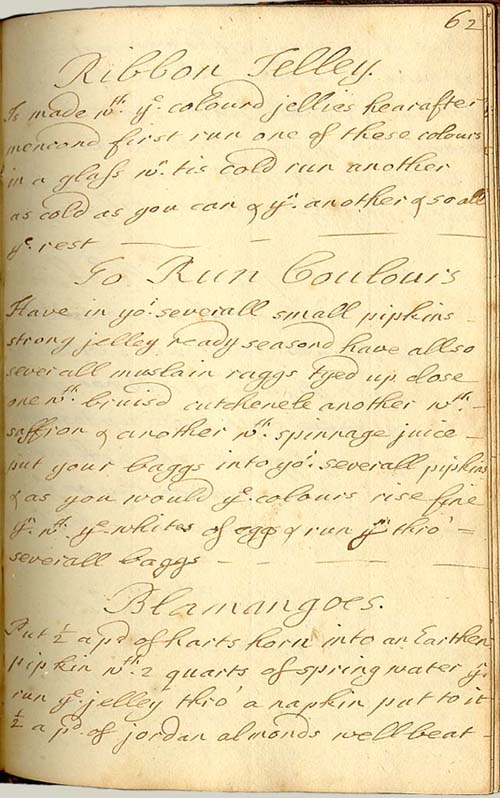 62
Ribbon Jelley.
Is made wth. ye. colourd jellies hearafter
mencond first run one of these colours
in a glass wn. tis cold run another
as cold as you can & yn. another & so all
ye. rest
To Run Coulours
Have in yor. severall small pipkins
strong jelley ready seasond have allso
severall muslain raggs tyed up close
one wth. bruisd cutchenele another wth.
saffron & another wth. spinnage juice
put your baggs into yor. severall pipkins
& as you would ye. colours rise fine
ym. wth. ye. whites of eggs & run ym thro'
severall baggs
Blamangoes.
Put ½ a pd of harts horn into an Earthen
pipkin wth. 2 quarts of spring water yn.
run ye. jelley thro' a napkin put to it
½ a pd. of jordan almonds well beat-